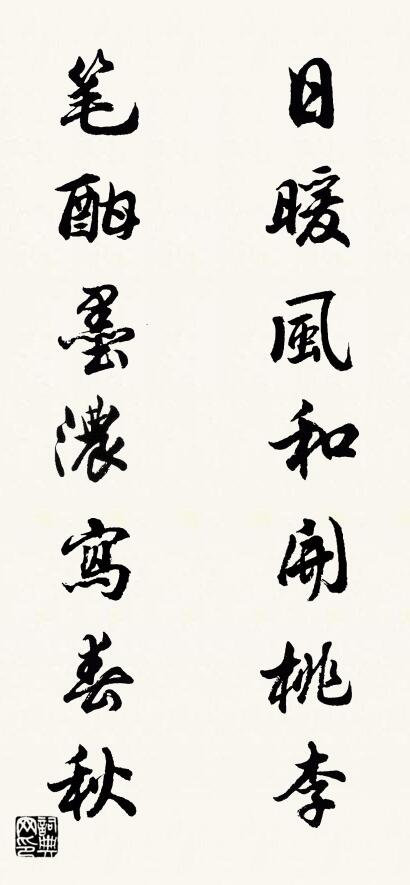 日暖風和開桃李
笔酣墨濃寫春秋
詞典网印